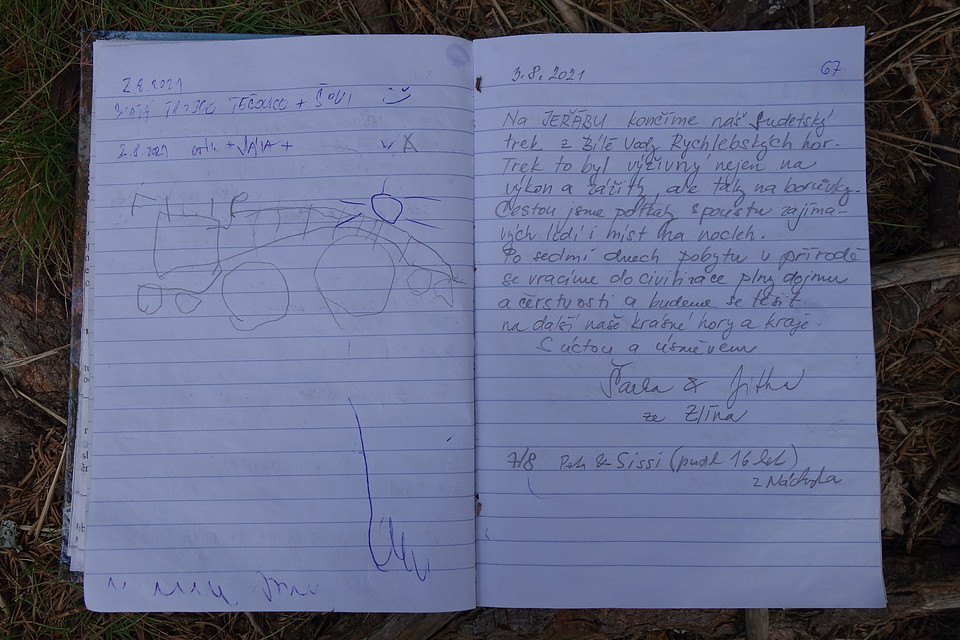 2.8.2021
TEČOUCO + ŠOVI
2.8.2021 + JAJA +
FILIP
3.8.2021
67
Na JEŘÁBU končíme náš Sudetský
trek z Bílé Vody Rychlebských hor.
Trek to byl výživný nejen na
výkon a zážitky, ale taky na borůvky.
Cestou jsme potkaly spoustu zajíma-
vých lidí i míst na nocleh.
Po sedmi dnech pobytu v přírodě
se vracíme do civilizace plny dojmu
a čerstvosti a budeme se těšit
na další naše krásné hory a kraje.
S úctou a úsměvem
Šárka & Jitka
ze Zlína
7/8 Petr & Sissi (pudl 16 let)
z Náchoda